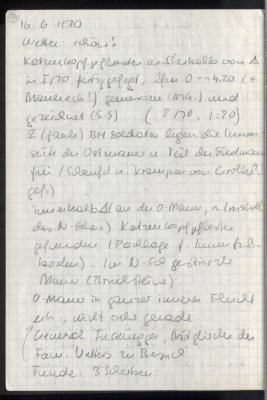 16.6.1970
Wetter schön!
Katzenkopfpflaster ausserhalb von Δ
in I/70 fertiggefegt, 4.20
Mauereck!) gemessen (MG.) und
gezeichnet (S.S) (8/70, 1:20)
2 (faule) BH Soldaten legen die Innen
seite der Ostmauer u. Teil der Südmauer
frei (Schaufel u. Krampen von
gef.)
innerhalb Δ an der O-Mauer,
des N-Ecks) Katzenkopfpflaster
gefunden (Packlage f. Innen
boden). Im N-Eck gestürzte
Mauer (Bruchsteine).
O-Mauer in ganzer innerer Flucht
nicht sehr gerade.
General Mitglieder der
Fam. Vetters zu Besuch
Funde: 3 Scherben